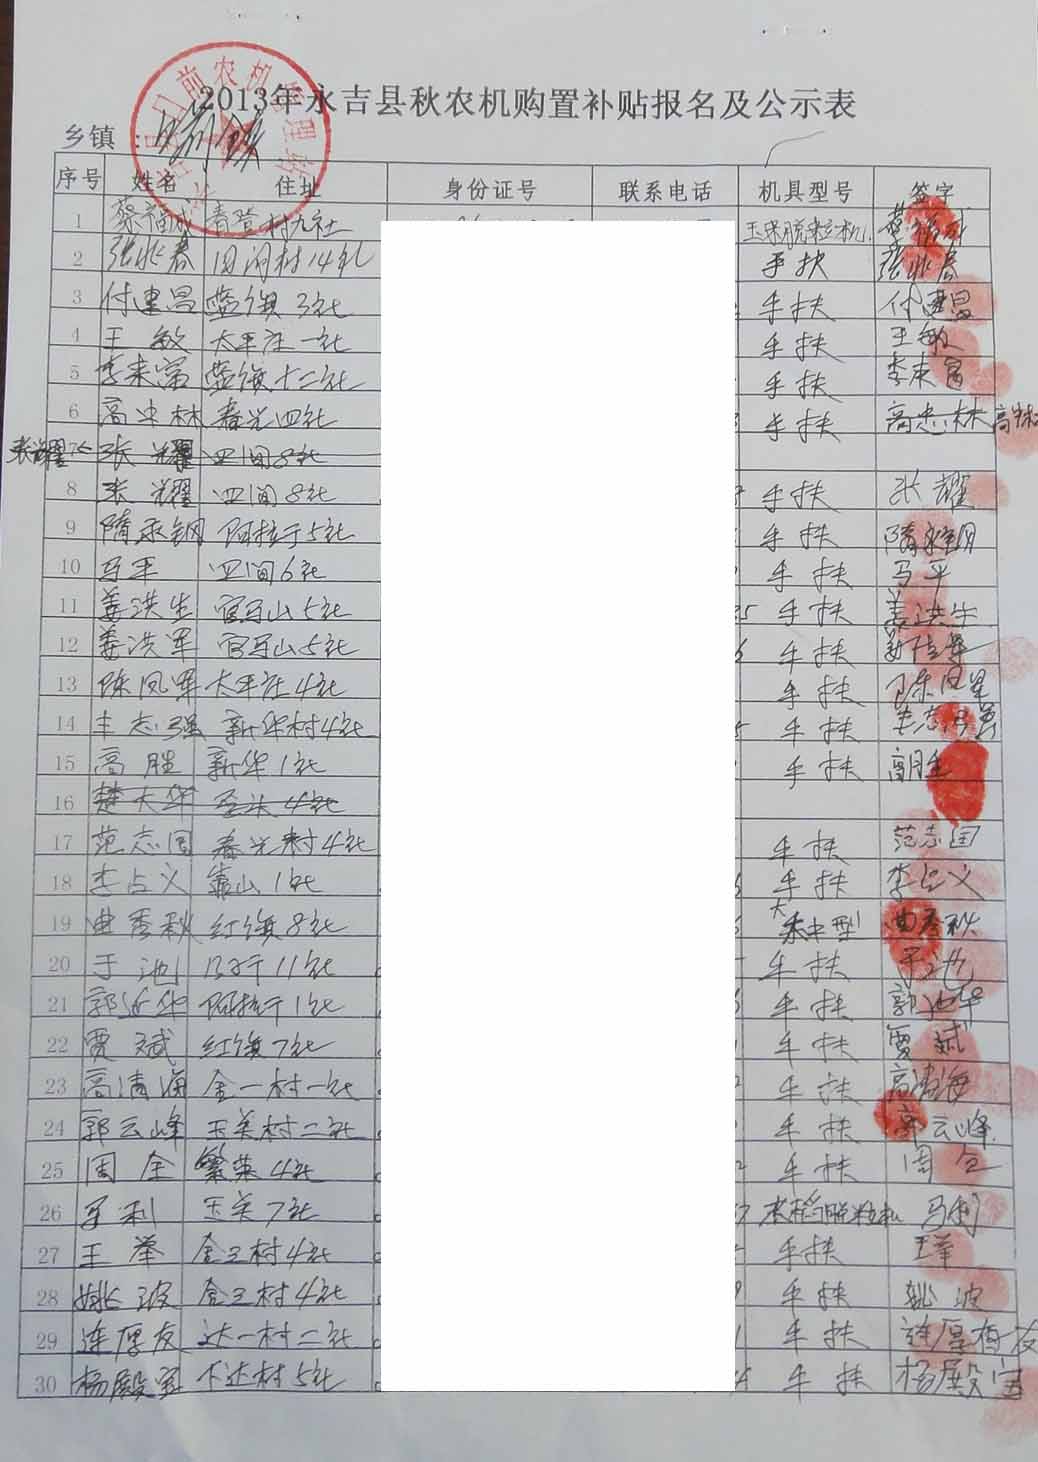 2013年永吉县秋农机购置补贴报名及公示表
乡镇：
序号 姓名 住址 身份证号 联系电话 机具型号 签字
1 蔡福成 青登村九社 玉米脱粒机 蔡福成
2 张兆春 14社 手扶 张兆春
3 付建昌 蓝旗3社 手扶 付建昌
4 王敏 太平庄一社 手扶 王敏
5 李来富 蓝旗十二社 手扶 李来富
6 高中林 春光四社 手扶 高忠林
7 张耀 四间8社
8 张耀 四间8社 手扶 张耀
9 隋永钢 阿拉于5社 手扶
10 马平 四间6社 手扶 马平
11 姜洪生 官马山5社 手扶 姜洪生
12 姜洪军 官马山5社 手扶
13 陈凤军 太平庄4社 手扶 陈凤军
14 志强 新华村4社 手扶
15 高胜 新华1社 手扶 高胜
16 楚大华 4社
17 范志国 春光村4社 手扶 范志国
18 李占义 靠山1社 手扶 李占义
19 曲秀秋 红旗8社 大中型 曲秀秋
20 于池 11社 手扶 于池
21 郭 华 阿拉于1社 手扶
22 贾斌 红旗7社 手扶 贾斌
23 高清海 金一村一社 手扶 高清海
24 郭云峰 村二社 手扶 郭云峰
25 周全 繁荣4社 手扶 周仓
26 马利 7社 水稻脱粒机 马利
27 王举 金 村4社 手扶 王举
28 姚波 金 村4社 手扶 姚波
29 连厚友 达一村二社 手扶 连厚 友
30 杨殿宝 下达村5社 手扶 杨殿宝